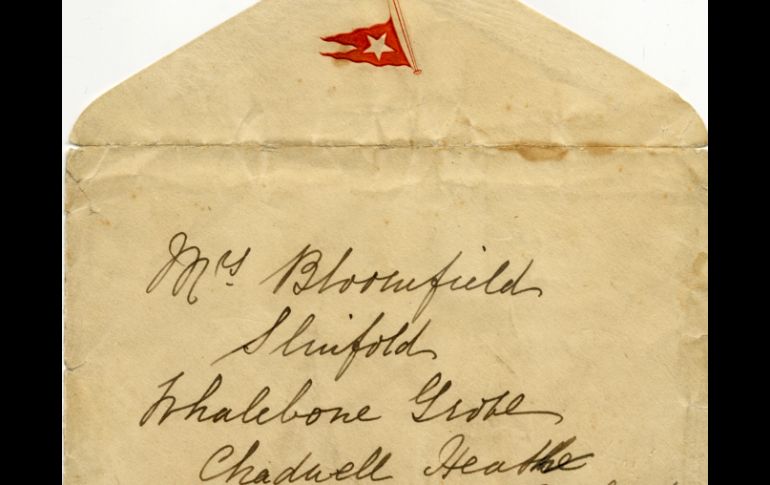 Mrs Bloomfield
Slinfold
Whalebone Grove
Chadwell Heath